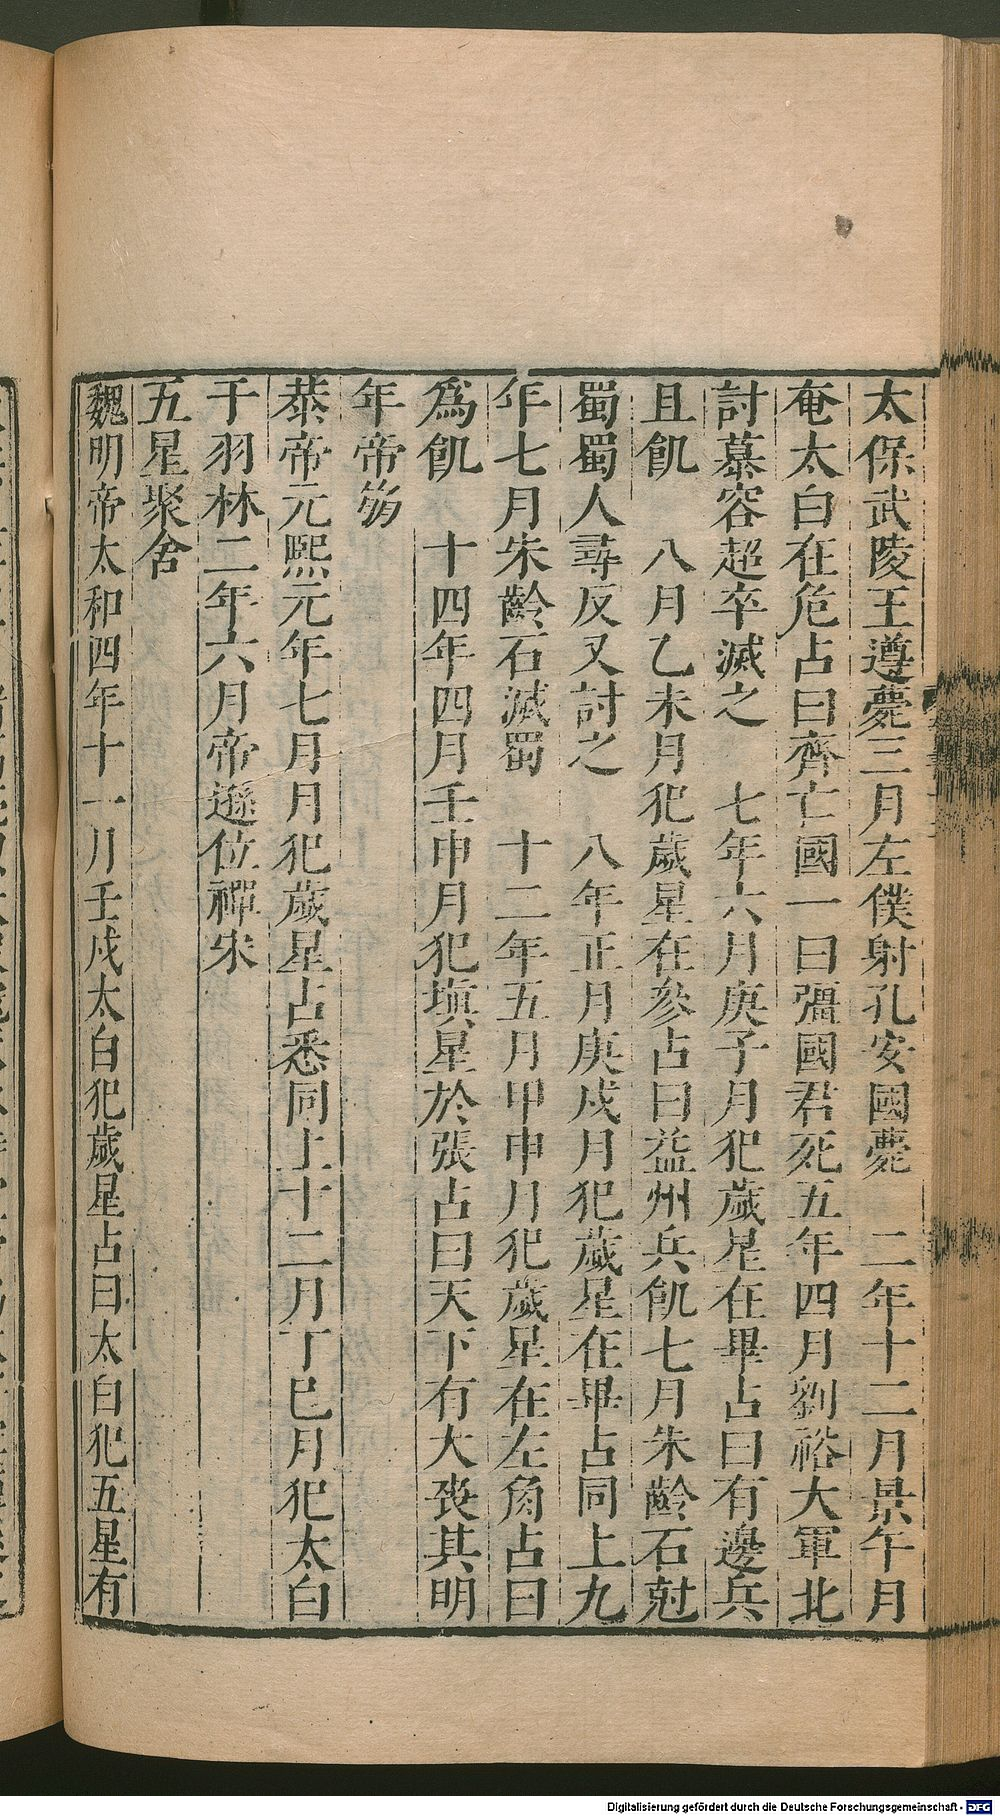 太保武陵王遵薨三月左僕射孔安國薨　二年十二月景午月
奄太白在危占曰齊亡國一曰彊國君死五年四月劉裕大軍北
討慕容超卒滅之　七年六月庚子月犯歲星在畢占曰有邊兵
且飢　八月乙未月犯歲星在參占曰益州兵飢七月朱齡石尅
蜀蜀人尋反又討之　八年正月庚戌月犯歲星在畢占同上九
年七月朱齡石滅蜀　十二年五月甲申月犯歲星在左角占曰
爲飢　十四年四月壬申月犯塡星於張占曰天下有大喪其明
年帝崩
恭帝元熙元年七月月犯歲星占悉同上十二月丁巳月犯太白
于羽林二年六月帝遜位禪宋
五星聚舍
魏明帝太和四年十一月壬戌太白犯歲星占曰太白犯五星有
Digitalisierung gefördert durch die Deutsche Forschungsgemeinschaft - DFG